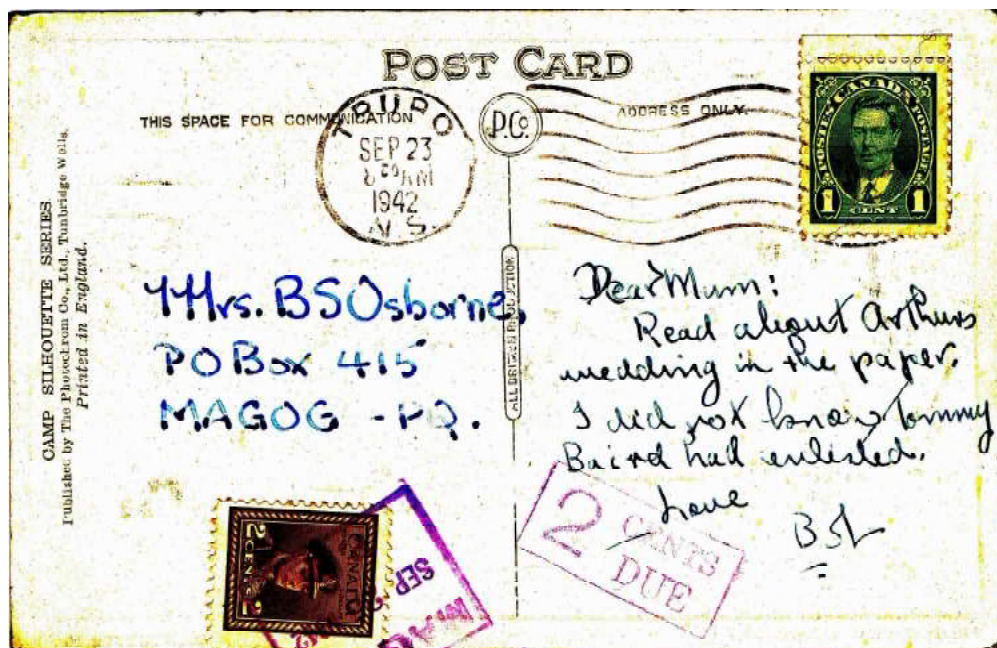 POST CARD
THIS SPACE FOR COMMUNICATION
P.Co.
ADDRESS ONLY.
TRURO
SEP 23
AM
1942
N.S.
POSTES CANADA POSTAGE
1 1
CENT
CAMP SILHOUETTE SERIES
Published by The Photochrom Co., Ltd., Tunbridge Wells.
Printed in England.
ALL BRITISH PRODUCTION
Mrs. BS Osborne,
PO Box 415
MAGOG - PQ.
Dear Mum:
Read about Arthurs
wedding in the paper.
I did not know Tommy
Baird had enlisted.
Love
2 CENTS
DUE
CANADA
2 CENTS 2
SEP
MAG